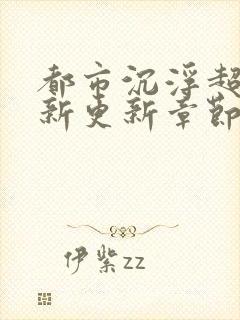 都市沉浮超
新更新章節
伊紫zz